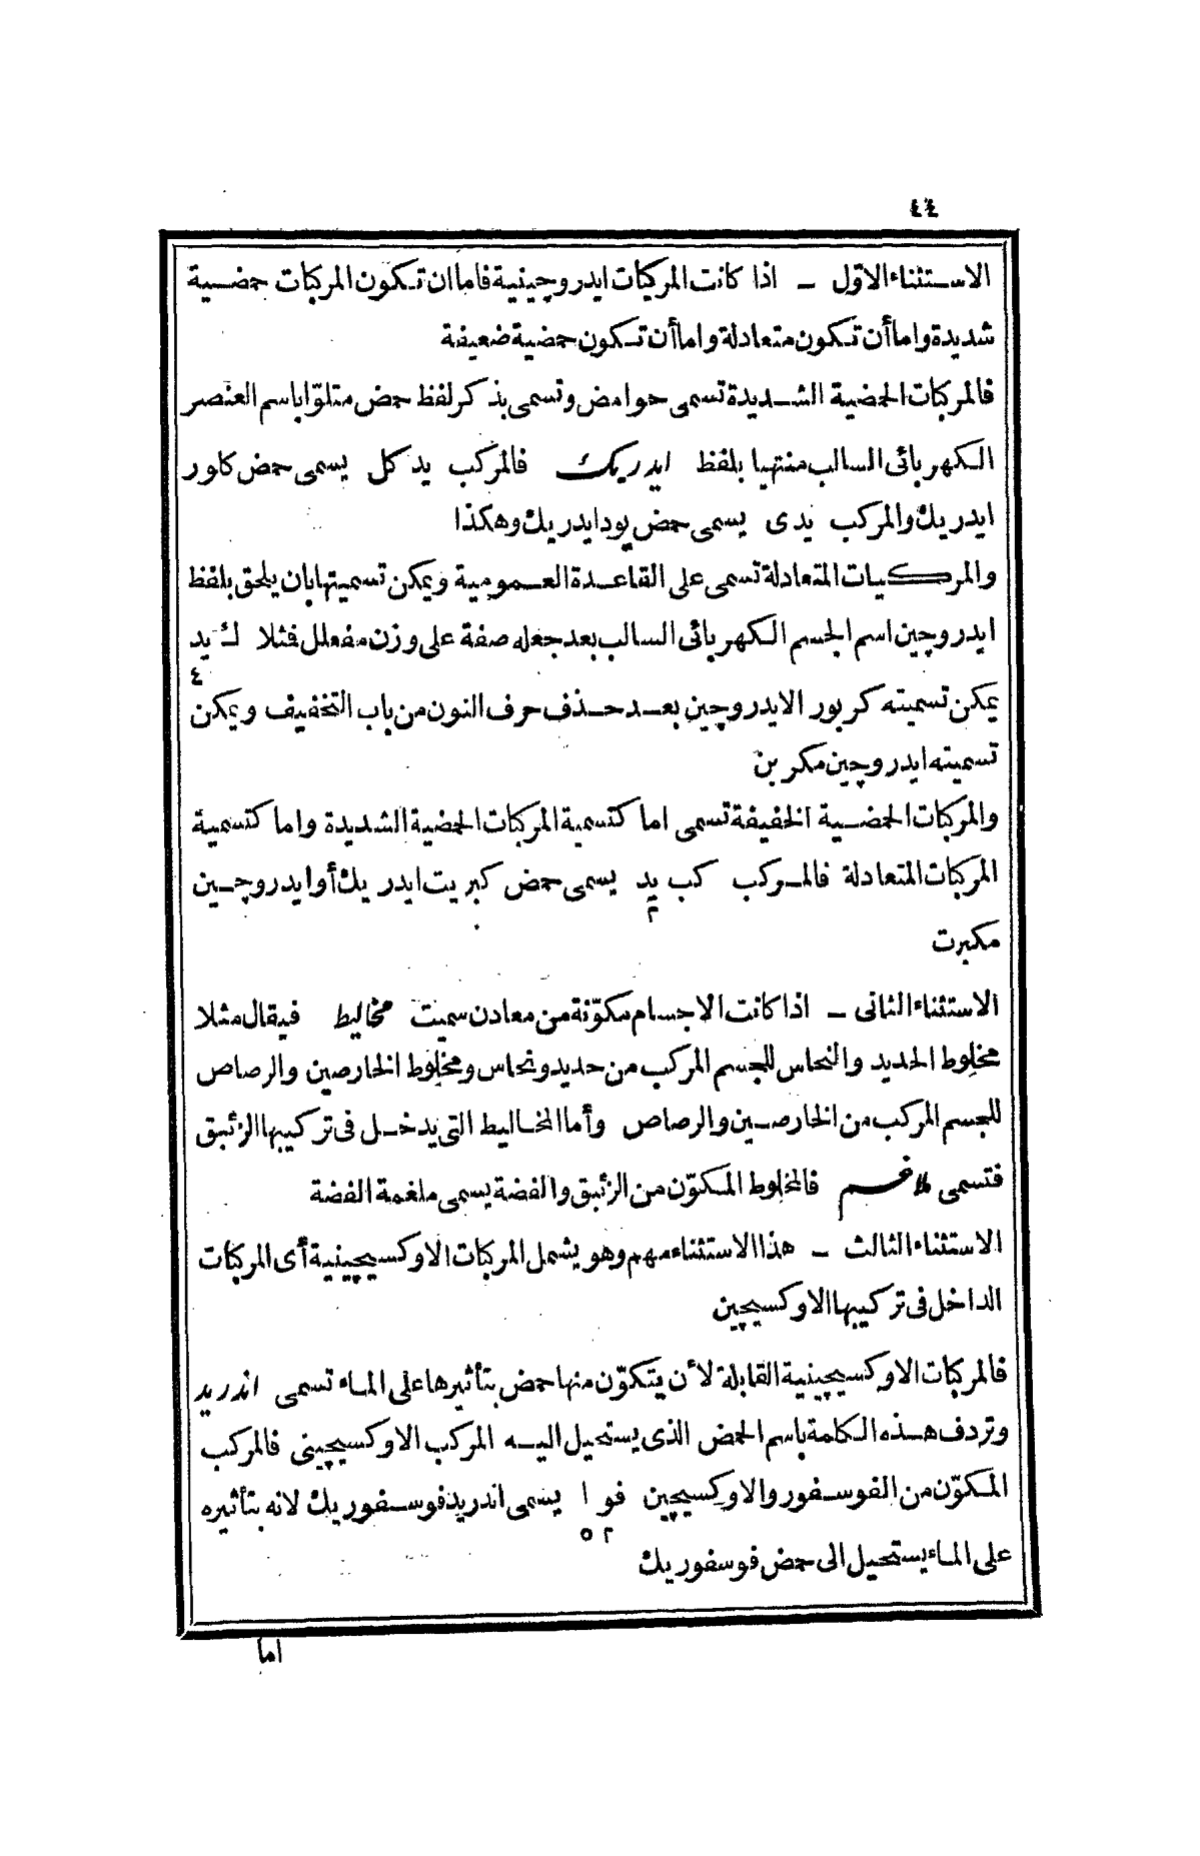 ٤٤
الاستثناء الاوّل ــ اذا كانت المركبات ايدروچينية فاما ان تكون المركبات حمضية
شديدة واما أن تكون متعادلة واما أن تكون حمضية ضعيفة
فالمركبات الحمضية الشديدة تسمى حوامض وتسمى بذكر لفظ حمض متلوّا باسم العنصر
الكهربائى السالب منتهيا بلفظ ايدريك فالمركب يدكل يسمى حمض كلور
ايدريك والمركب يدى يسمى حمض يودايدريك وهكذا
والمركبات المتعادلة تسمى على القاعدة العمومية ويمكن تسميتها بان يلحق بلفظ
ايدروچين اسم الجسم الكهربائى السالب بعد جعله صفة على وزن مفعلل فمثلا ك يد
٤
يمكن تسميته كربور الايدروچين بعد حذف حرف النون من باب التخفيف ويمكن
تسميته ايدروچين مكربن
والمركبات الحمضية الخفيفة تسمى اما كتسمية المركبات الحمضية الشديدة واما كتسمية
المركبات المتعادلة فالمركب كب يد يسمى حمض كبريت ايدريك أو ايدروچين
٢
مكبرت
الاستثناء الثانى ــ اذا كانت الاجسام مكوّنة من معادن سميت مخاليط فيقال مثلا
مخلوط الحديد والنحاس للجسم المركب من حديد ونحاس ومخلوط الخارصين والرصاص
للجسم المركب من الخارصين والرصاص وأما المخاليط التى يدخل فى تركيبها الزئبق
فتسمى ملاغم فالمخلوط المكوّن من الزئبق والفضة يسمى ملغمة الفضة
الاستثناء الثالث ــ هذا الاستثناء مهم وهو يشمل المركبات الاوكسيچينية أى المركبات
الداخل فى تركيبها الاوكسيچين
فالمركبات الاوكسيچينية القابلة لأن يتكوّن منها حمض بتأثيرها على الماء تسمى اندريد
وتردف هذه الكلمة باسم الحمض الذى يستحيل اليه المركب الاوكسيچينى فالمركب
المكوّن من الفوسفور والاوكسيچين فو ا يسمى اندريد فوسفوريك لانه بتأثيره
٢ ٥
على الماء يستحيل الى حمض فوسفوريك
اما